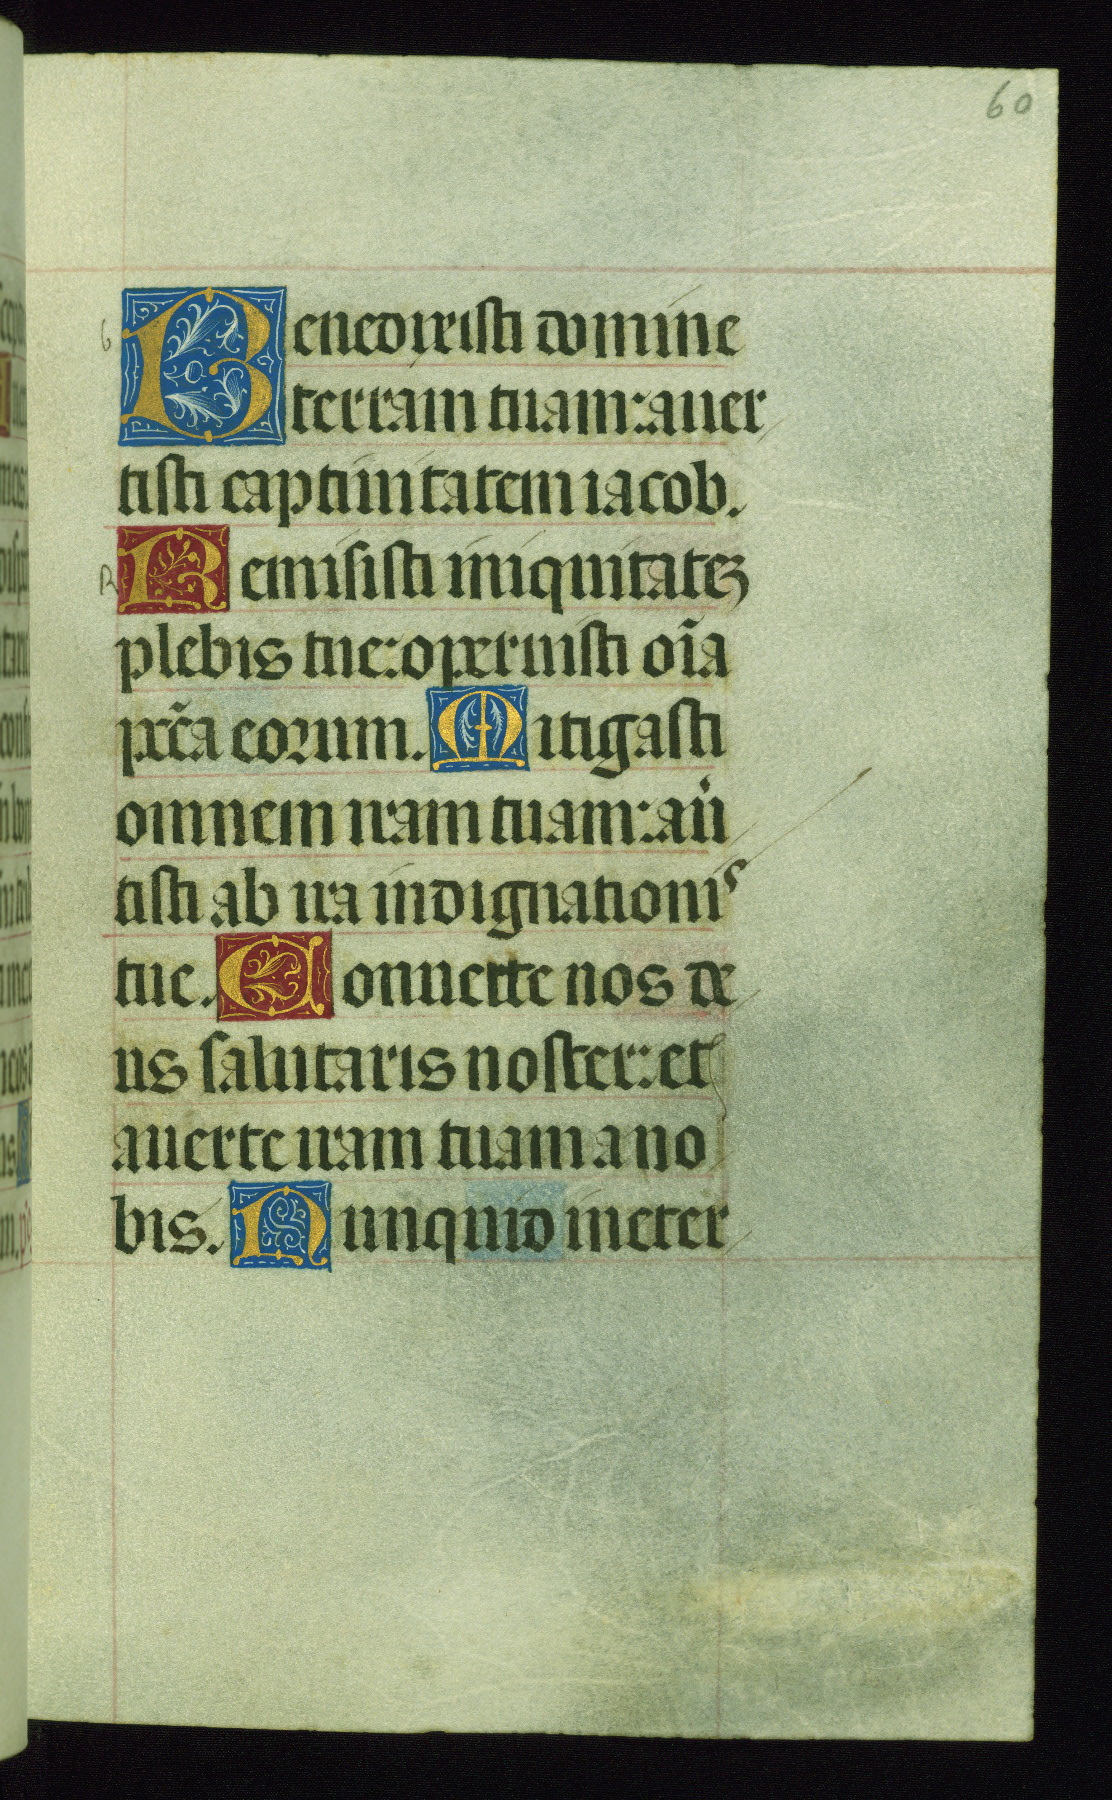 60
Benedixisti domine
terram tuam: auer
tisti captiuitatem iacob.
Remisisti iniquitatez
plebis tue: operuisti oīa
pctā eorum. Mitigasti
omnem iram tuam: au̓
tisti ab ira indignationis
tue. Conuerte nos de
us salutaris noster: et
auerte iram tuam a no
bis. Nunquid in eter